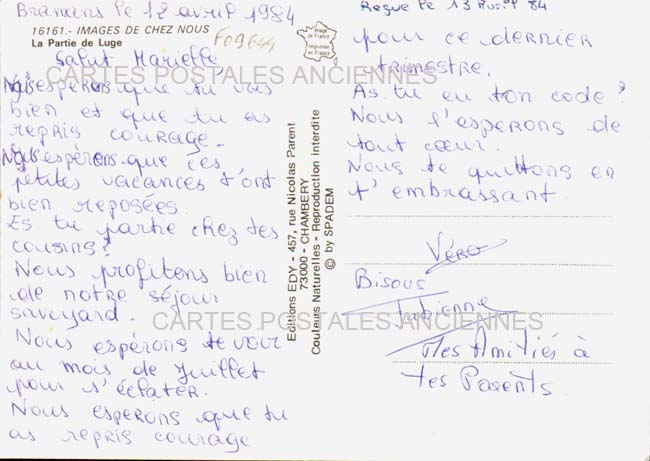 Bramans le 12 avril 1984
16161.- IMAGES DE CHEZ NOUS
La Partie de Luge
F09644
Image de France
Imprimée en France
Salut Marielle
CARTES POSTALES ANCIENNES
Nous espérons que tu vas
bien et que tu as
repris courage.
Nous espèrons que ces
petites vacances t'ont
bien reposées.
Es tu partie chez tes
cousins?
Nous profitons bien
de notre séjour
savoyard.
CARTES POSTALES ANCIENNES
Nous espérons te voir
au mois de Juillet
pour s'éclater.
Nous esperons que tu
as repris courage
Editions EDY - 457, rue Nicolas Parent
73000 - CHAMBERY
Couleurs Naturelles - Reproduction Interdite
© by SPADEM
Reçue le 13 Avril 84
pour ce dernier
trimestre.
As tu eu ton code?
Nous l'esperons de
tout cœur.
Nous te quittons en
t'embrassant.
Véro
Bisous
Fabienne
Mes Amitiés à
tes Parents